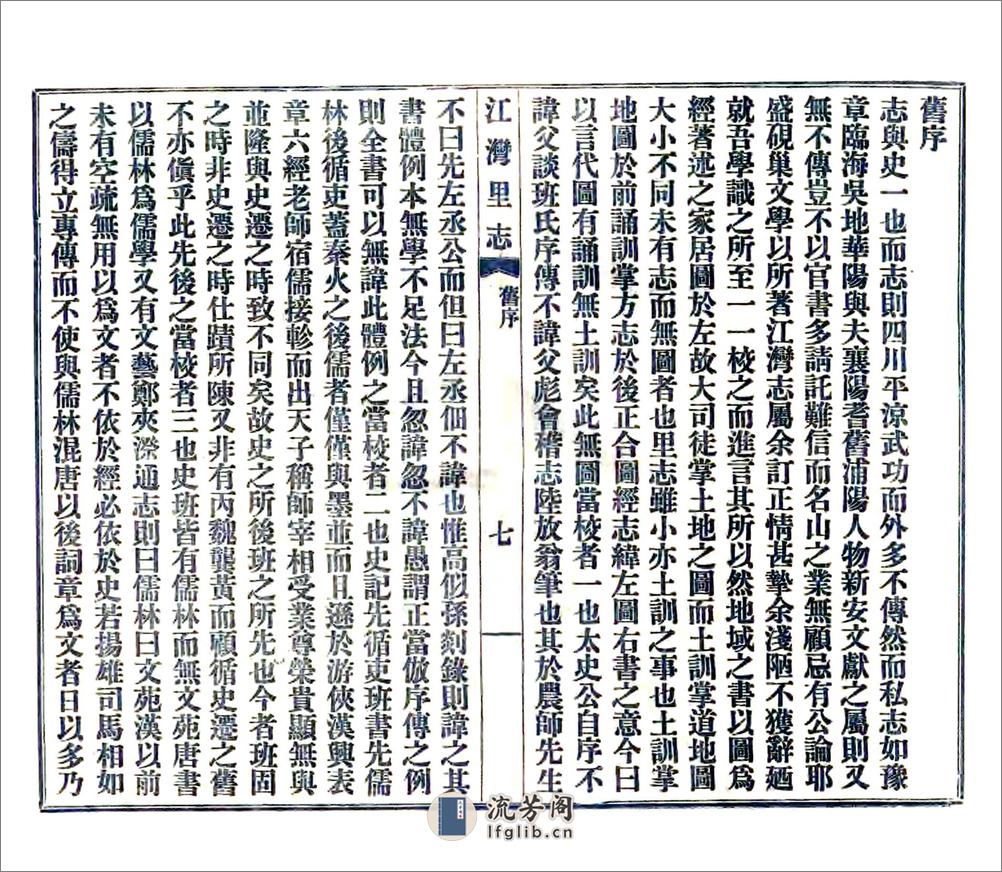 舊序
志與史一也而志則四川平涼武功而外多不傳然而私志如豫
章臨海吳地華陽與夫襄陽耆舊浦陽人物新安文獻之屬則又
無不傳豈不以官書多請託難信而名山之業無顧忌有公論耶
盛硯巢文學以所著江灣志屬余訂正情甚摯余淺陋不獲辭廼
就吾學識之所至一一校之而進言其所以然地域之書以圖爲
經著述之家居圖於左故大司徒掌土地之圖而土訓掌道地圖
大小不同未有志而無圖者也里志雖小亦土訓之事也土訓掌
地圖於前誦訓掌方志於後正合圖經志緯左圖右書之意今曰
以言代圖有誦訓無土訓矣此無圖當校者一也太史公自序不
諱父談班氏序傳不諱父彪會稽志陸放翁筆也其於農師先生
江灣里志
舊序
七
不曰先左丞公而但曰左丞佃不諱也惟高似孫剡錄則諱之其
書體例本無學不足法今且忽諱忽不諱愚謂正當倣序傳之例
則全書可以無諱此體例之當校者二也史記先循吏班書先儒
林後循吏蓋秦火之後儒者僅僅與墨並而且遜於游俠漢興表
章六經老師宿儒接軫而出天子稱師宰相受業尊榮貴顯無與
並隆與史遷之時致不同矣故史之所後班之所先也今者班固
之時非史遷之時仕蹟所陳又非有丙魏龔黃而顧循史遷之舊
不亦傎乎此先後之當校者三也史班皆有儒林而無文苑唐書
以儒林爲儒學又有文藝鄭夾漈通志則曰儒林曰文苑漢以前
未有空疏無用以爲文者不依於經必依於史若揚雄司馬相如
之儔得立專傳而不使與儒林混唐以後詞章爲文者日以多乃
流芳阁
lfglib.cn